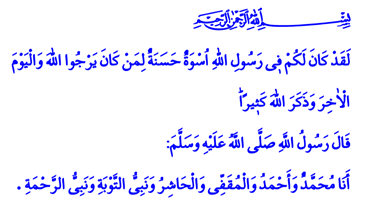 بِسْمِ اللّٰهِ الرَّحْمٰنِ الرَّحِيمِ
لَقَدْ كَانَ لَكُمْ ف۪ي رَسُولِ اللّٰهِ اُسْوَةٌ حَسَنَةٌ لِمَنْ كَانَ يَرْجُوا اللّٰهَ وَالْيَوْمَ
الْاٰخِرَ وَذَكَرَ اللّٰهَ كَث۪يرًاۜ
قَالَ رَسُولُ اللَّهِ صَلَّى اللَّهُ عَلَيْهِ وَسَلَّمَ:
أَنَا مُحَمَّدٌ وَأَحْمَدُ وَالْمُقَفِّى وَالْحَاشِرُ وَنَبِىُّ التَّوْبَةِ وَنَبِىُّ الرَّحْمَةِ .